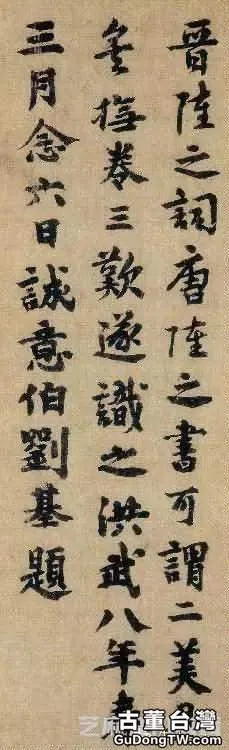 晉陸之詞唐陸之書可謂二美
矣撫卷三歎遂識之洪武八年春
三月念六日誠意伯劉基題
古董台灣
GuDongTW.com